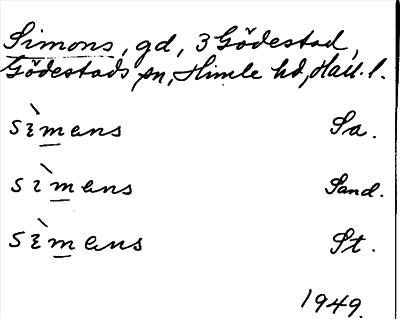 Simons, gd, 3 Gödestad,
Gödestads sn, Himle hd, Hall. l.
sɩ̀mans Sa.
sɩ̀mans Sand.
sɩ̀mans St.
1949.